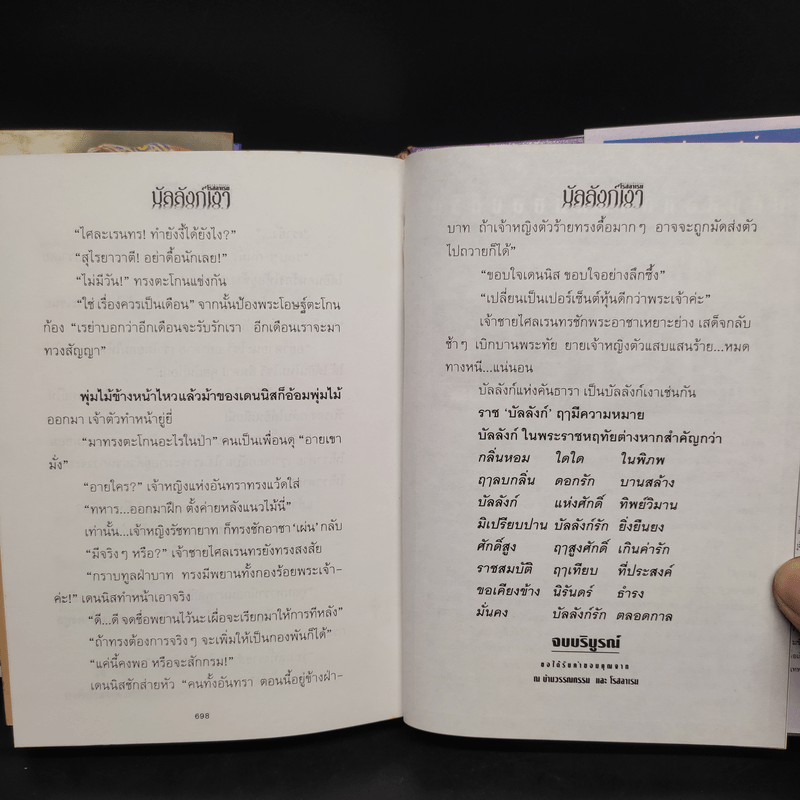 โรสลาเรน
บัลลังก์เงา
“ไศละเรนทร! ทำยังงี้ได้ยังไง?”
“สุไรยาวาตี! อย่าดื้อนักเลย!”
“ไม่มีวัน!” ทรงตะโกนแข่งกัน
“ใช่ เรื่องควรเป็นเดือน” จากนั้นป้องพระโอษฐ์ตะโกน
ก้อง “เรย่าบอกว่าอีกเดือนจะรับรักเรา อีกเดือนเราจะมา
ทวงสัญญา”
พุ่มไม้ข้างหน้าไหวแล้วม้าของเดนนิสก็อ้อมพุ่มไม้
ออกมา เจ้าตัวทำหน้ายู่ยี่
“มาทรงตะโกนอะไรในป่า” คนเป็นเพื่อนดุ “อายเขา
มั่ง”
“อายใคร?” เจ้าหญิงแห่งอันทราทรงแว้ดใส่
“ทหาร...ออกมาฝึก ตั้งค่ายหลังแนวไม้นี่”
เท่านั้น...เจ้าหญิงรัชทายาท ก็ทรงชักอาชา ‘เผ่น’ กลับ
“มีจริงๆ หรือ?” เจ้าชายไศลเรนทรยังทรงสงสัย
“กราบทูลฝ่าบาท ทรงมีพยานทั้งกองร้อยพระเจ้า–
ค่ะ!” เดนนิสทำหน้าเอาจริง
“ดี...ดี จดชื่อพยานไว้นะเผื่อจะเรียกมาให้การทีหลัง”
“ถ้าทรงต้องการจริงๆ จะเพิ่มให้เป็นกองพันก็ได้”
“แค่นี้คงพอ หรือจะสักกรม!”
เดนนิสชักส่ายหัว “คนทั้งอันทรา ตอนนี้อยู่ข้างฝ่า–
698
โรสลาเรน
บัลลังก์เงา
บาท ถ้าเจ้าหญิงตัวร้ายทรงดื้อมากๆ อาจจะถูกมัดส่งตัว
ไปถวายก็ได้”
“ขอบใจเดนนิส ขอบใจอย่างลึกซึ้ง”
“เปลี่ยนเป็นเปอร์เซ็นต์หุ้นดีกว่าพระเจ้าค่ะ”
เจ้าชายไศลเรนทรชักพระอาชาเหยาะย่าง เสด็จกลับ
ช้าๆ เบิกบานพระทัย ยายเจ้าหญิงตัวแสบแสนร้าย...หมด
ทางหนี...แน่นอน
บัลลังก์แห่งคันธารา เป็นบัลลังก์เงาเช่นกัน
ราช ‘บัลลังก์’ ฤามีความหมาย
บัลลังก์ ในพระราชหฤทัยต่างหากสำคัญกว่า
กลิ่นหอม ใดใด ในพิภพ
ฤาลบกลิ่น ดอกรัก บานสล้าง
บัลลังก์ แห่งศักดิ์ ทิพย์วิมาน
มิเปรียบปาน บัลลังก์รัก ยิ่งยืนยง
ศักดิ์สูง ฤาสูงศักดิ์ เกินค่ารัก
ราชสมบัติ ฤาเทียบ ที่ประสงค์
ขอเคียงข้าง นิรันดร์ ธำรง
มั่นคง บัลลังก์รัก ตลอดกาล
จบบริบูรณ์
ขอได้รับคำขอบคุณจาก
ณ บ้านวรรณกรรม และ โรสลาเรน